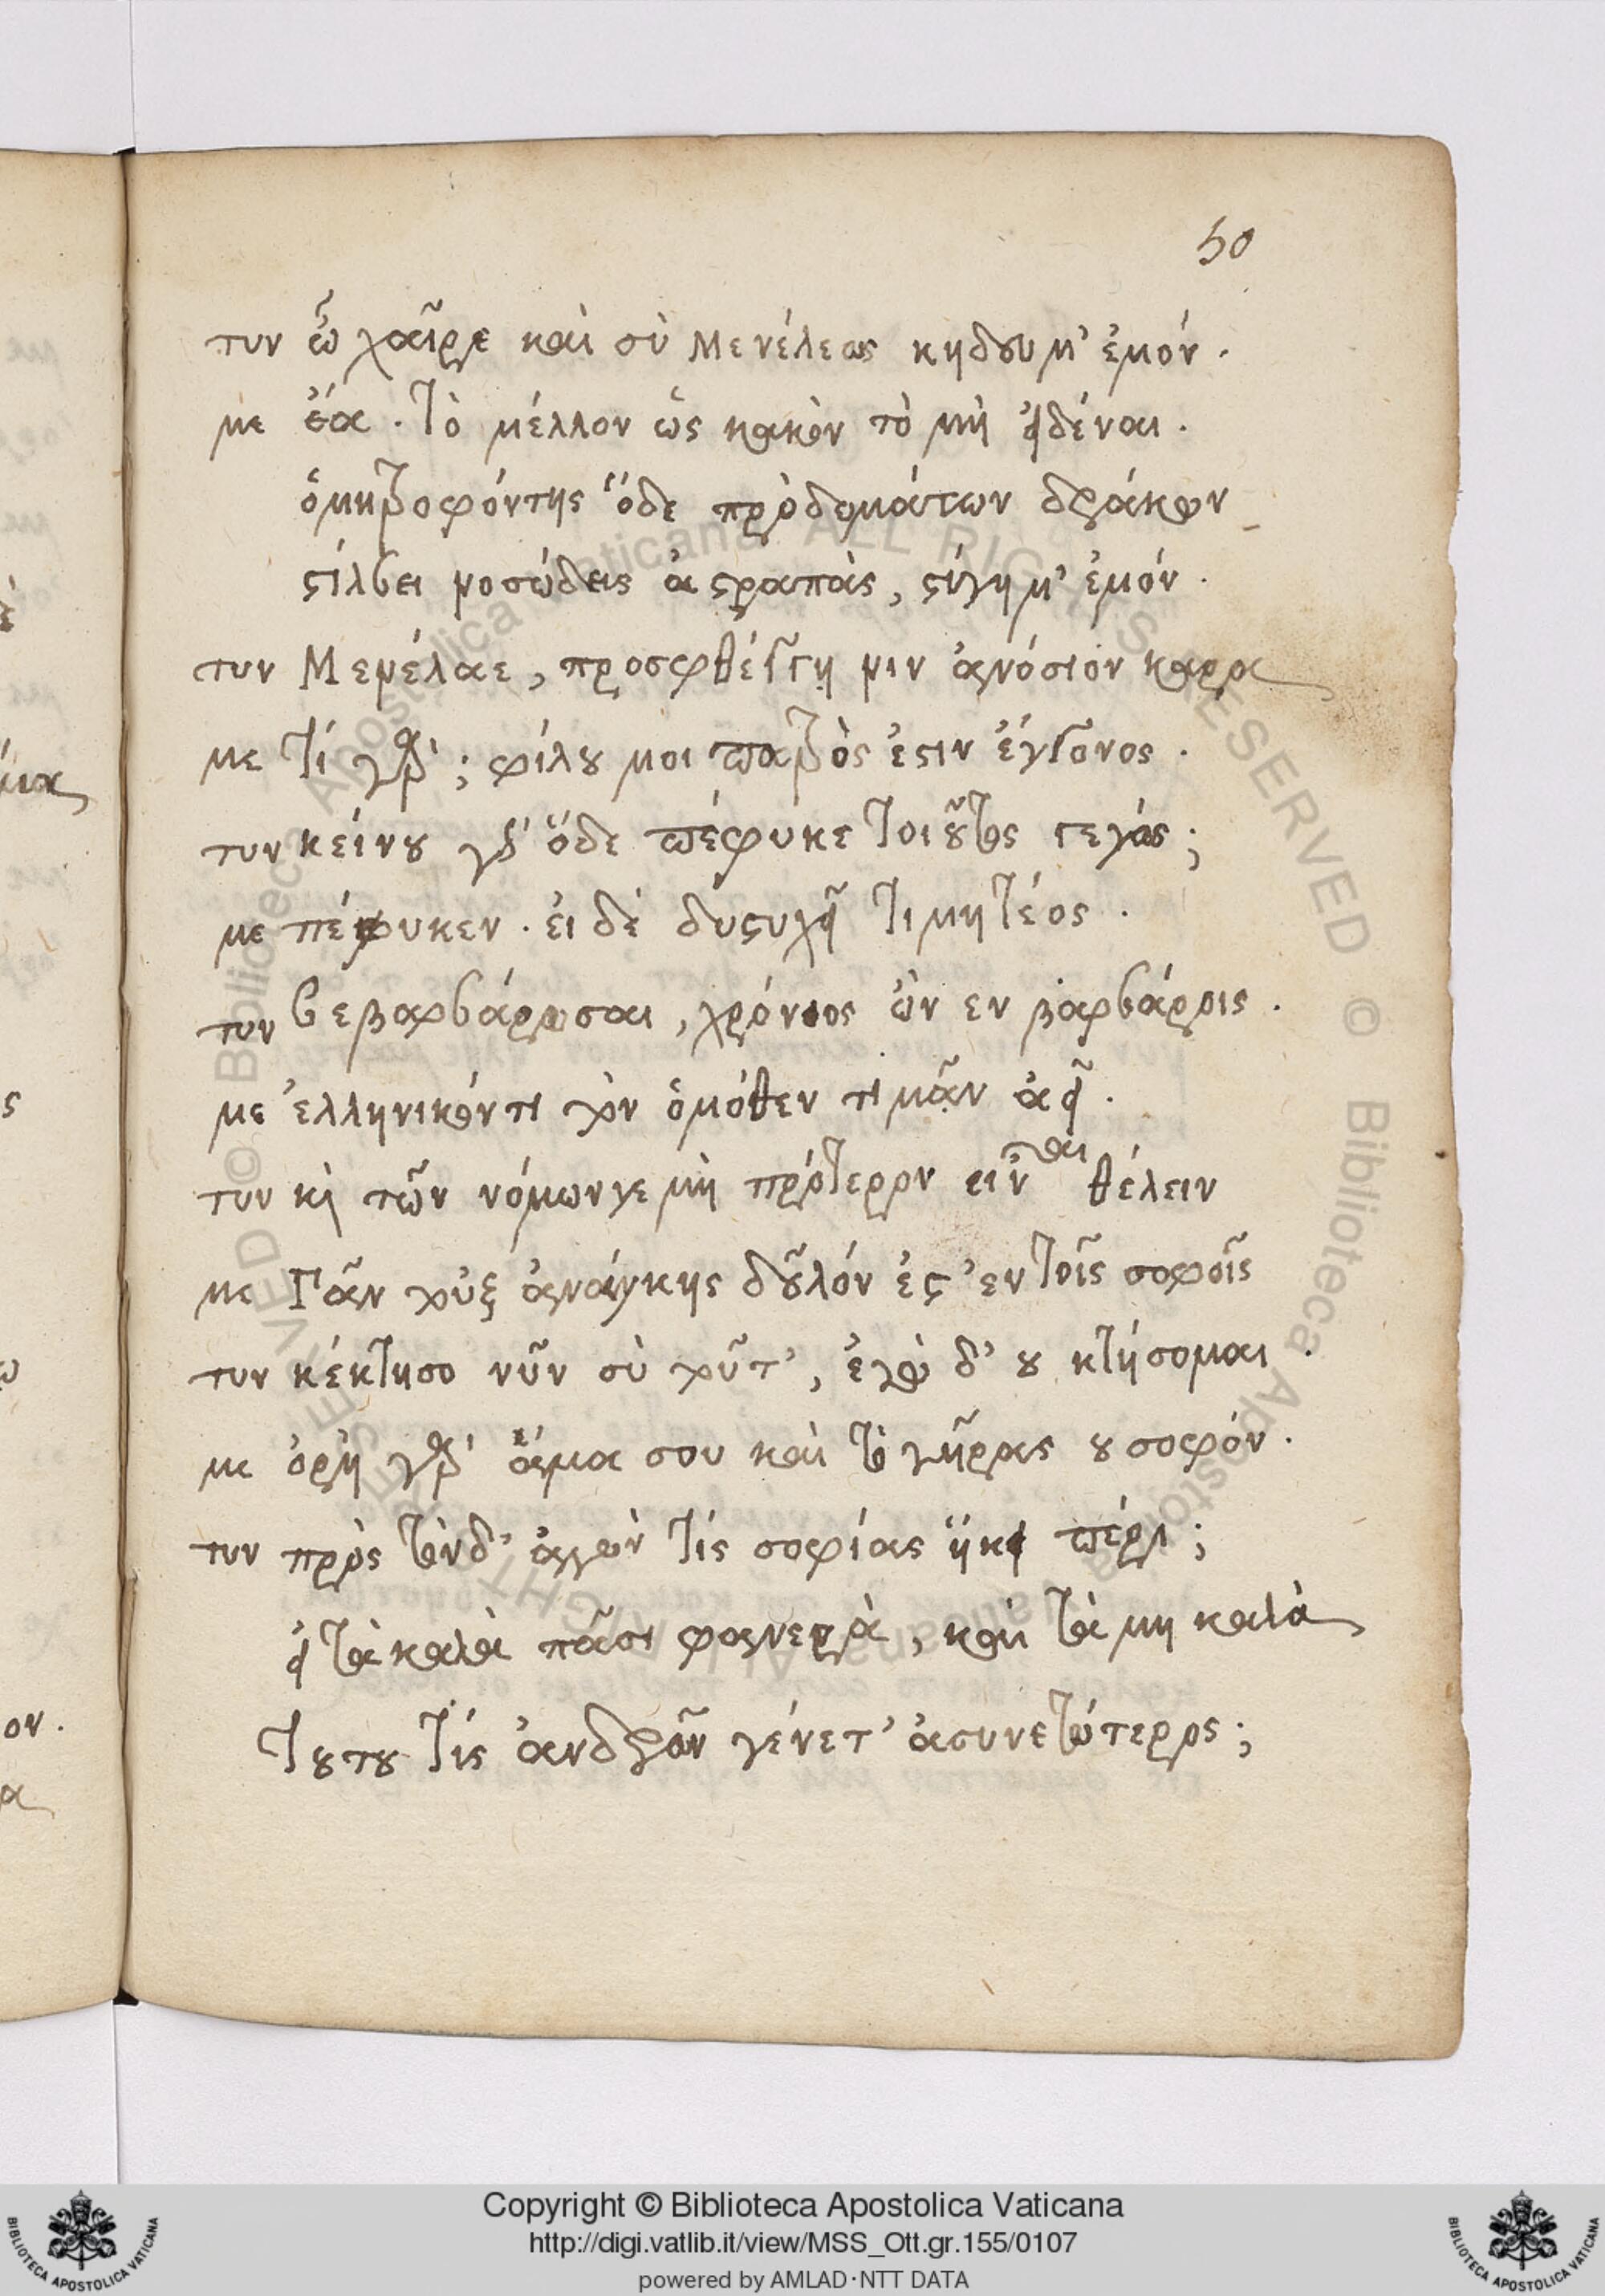 50
τυν ὦ χαῖρε καὶ σὺ Μενέλεως κηδουμ' ἐμόν.
με ἔα. Τὸ μέλλον ὡς κακὸν τὸ μὴ εἰδέναι.
ὁμητροφόντης ὅδε πρὸ δομάτων δράκων
στίλβει νοσώδεις ἀστραπὰς, στύγημ' ἐμόν.
τυν Μενέλαε, προσφθέγγη νιν ἀνόσιον καρα
με Τί γάρ; φίλου μοι πατρὸς ἐστιν ἔγγονος.
τυν κείνου γὰρ ὅδε πέφυκε Τοιοῦτος γεγώς;
με πέφυκεν. εἰ δὲ δυστυχεῖ Τιμητέος.
τυν βεβαρβάρωσαι, χρόνιος ὢν εν βαρβάροις.
με ἑλληνικόν τι τὸν ὁμόθεν τιμᾶν ἀεῖ.
τυν κὶ τῶν νόμων γε μὴ πρότερον εἰναι θέλειν
με Πᾶν τοὐξ ἀνάγκης δοῦλόν ἐστ' ἐν Τοῖς σοφοῖς
τυν κέκτησο νῦν σὺ τοῦτ', ἐγὼ δ' ου κτήσομαι.
με ὀργὴ γάρ ἅμα σου καὶ τὸ γῆρας ου σοφόν.
τυν πρὸς τὸνδ' ἀγὼν Τίς σοφίας ἥκει πέρι;
εἰ τὰ καλὰ πᾶσι φανερὰ, καὶ τὰ μη καλὰ
Τουτου Τίς ἀνδρῶν γένετ' ἀσυνετώτερος;
Copyright © Biblioteca Apostolica Vaticana
http://digi.vatlib.it/view/MSS_Ott.gr.155/0107
powered by AMLAD·NTT DATA